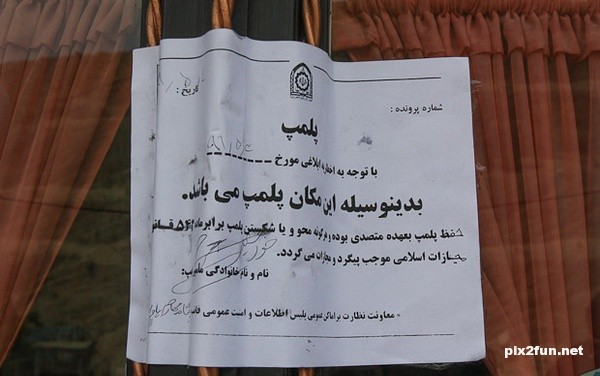 تاریخ:
شماره پرونده:
پلمپ
با توجه به اخطاریه ابلاغی مورخ
بدینوسیله این مکان پلمپ می باشد.
حفظ پلمپ بعهده متصدی بوده و هرگونه محو و یا شکستن پلمپ برابر ماده ۵۴۳ قانون
مجازات اسلامی موجب پیگرد و مجازات می گردد.
نام و نام خانوادگی مامور پلمپ:
معاونت نظارت بر اماکن عمومی پلیس اطلاعات و امنیت عمومی
pix2fun.net